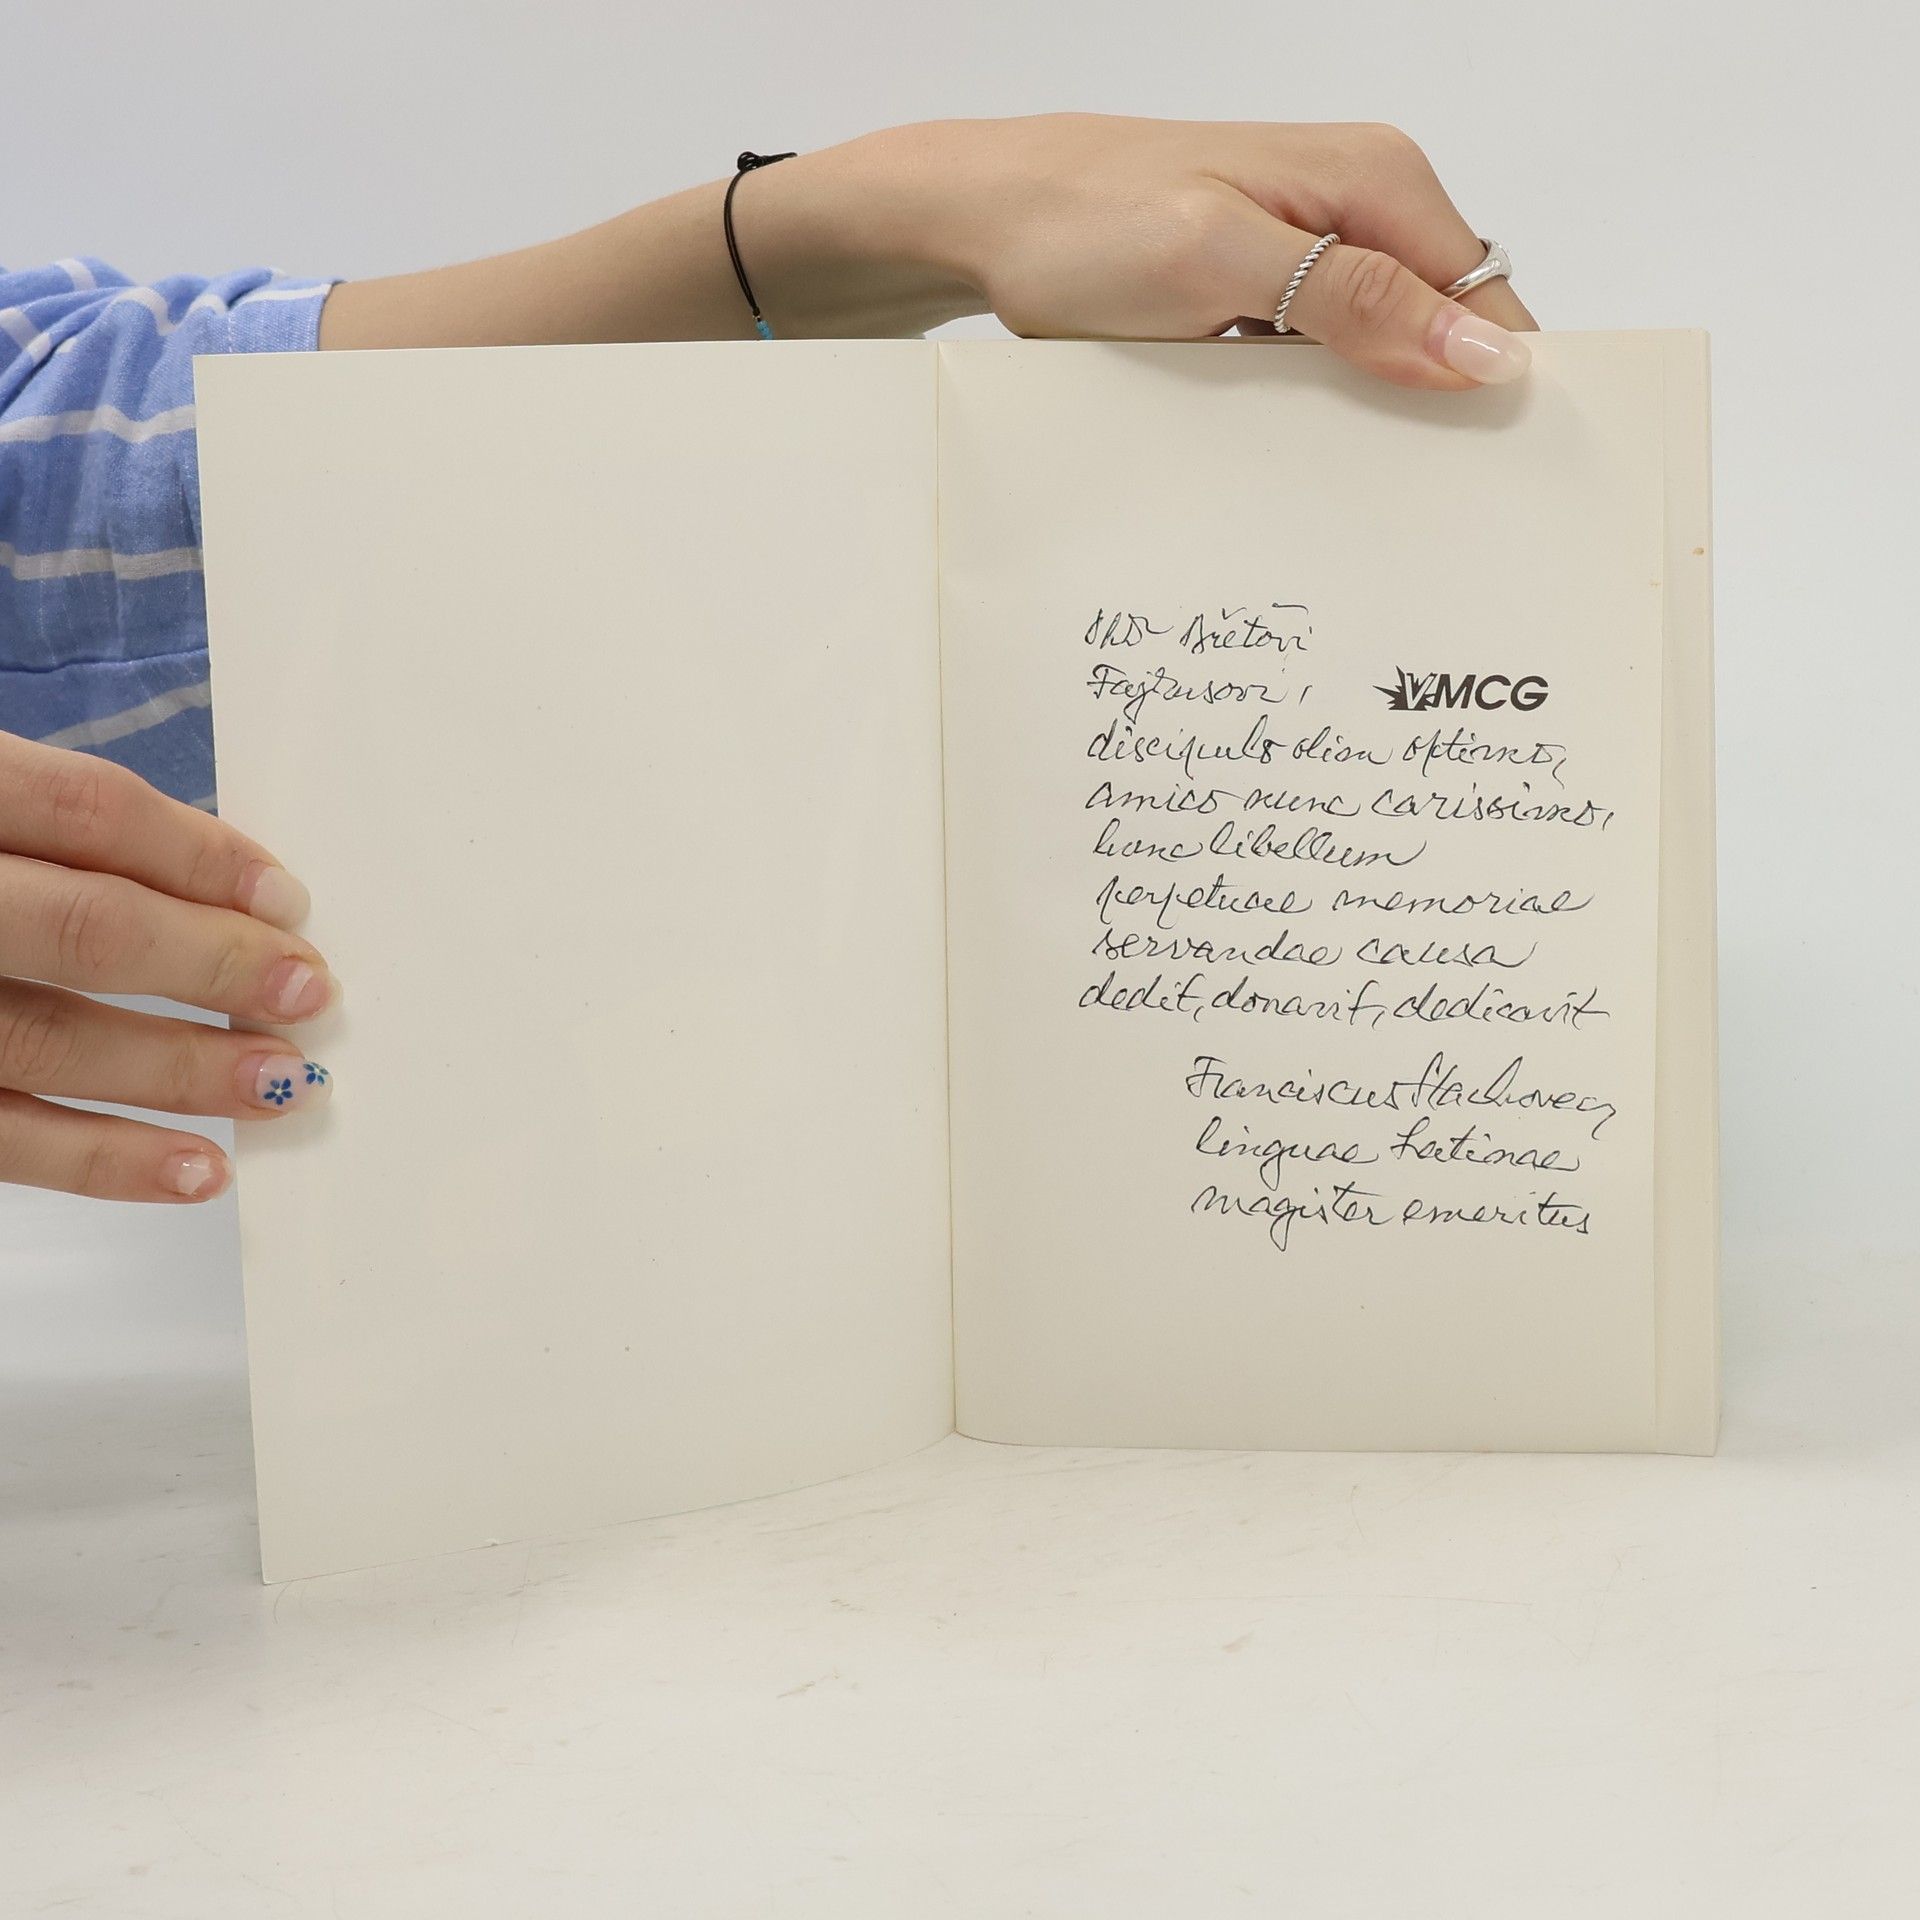 PhDr Břéťovi
Fajtusovi,
VMCG
discipulo olim optimo,
amico nunc carissimo,
hunc libellum
perpetuae memoriae
servandae causa
dedit, donavit, dedicavit
Franciscus Stachovec,
linguae Latinae
magister emeritus